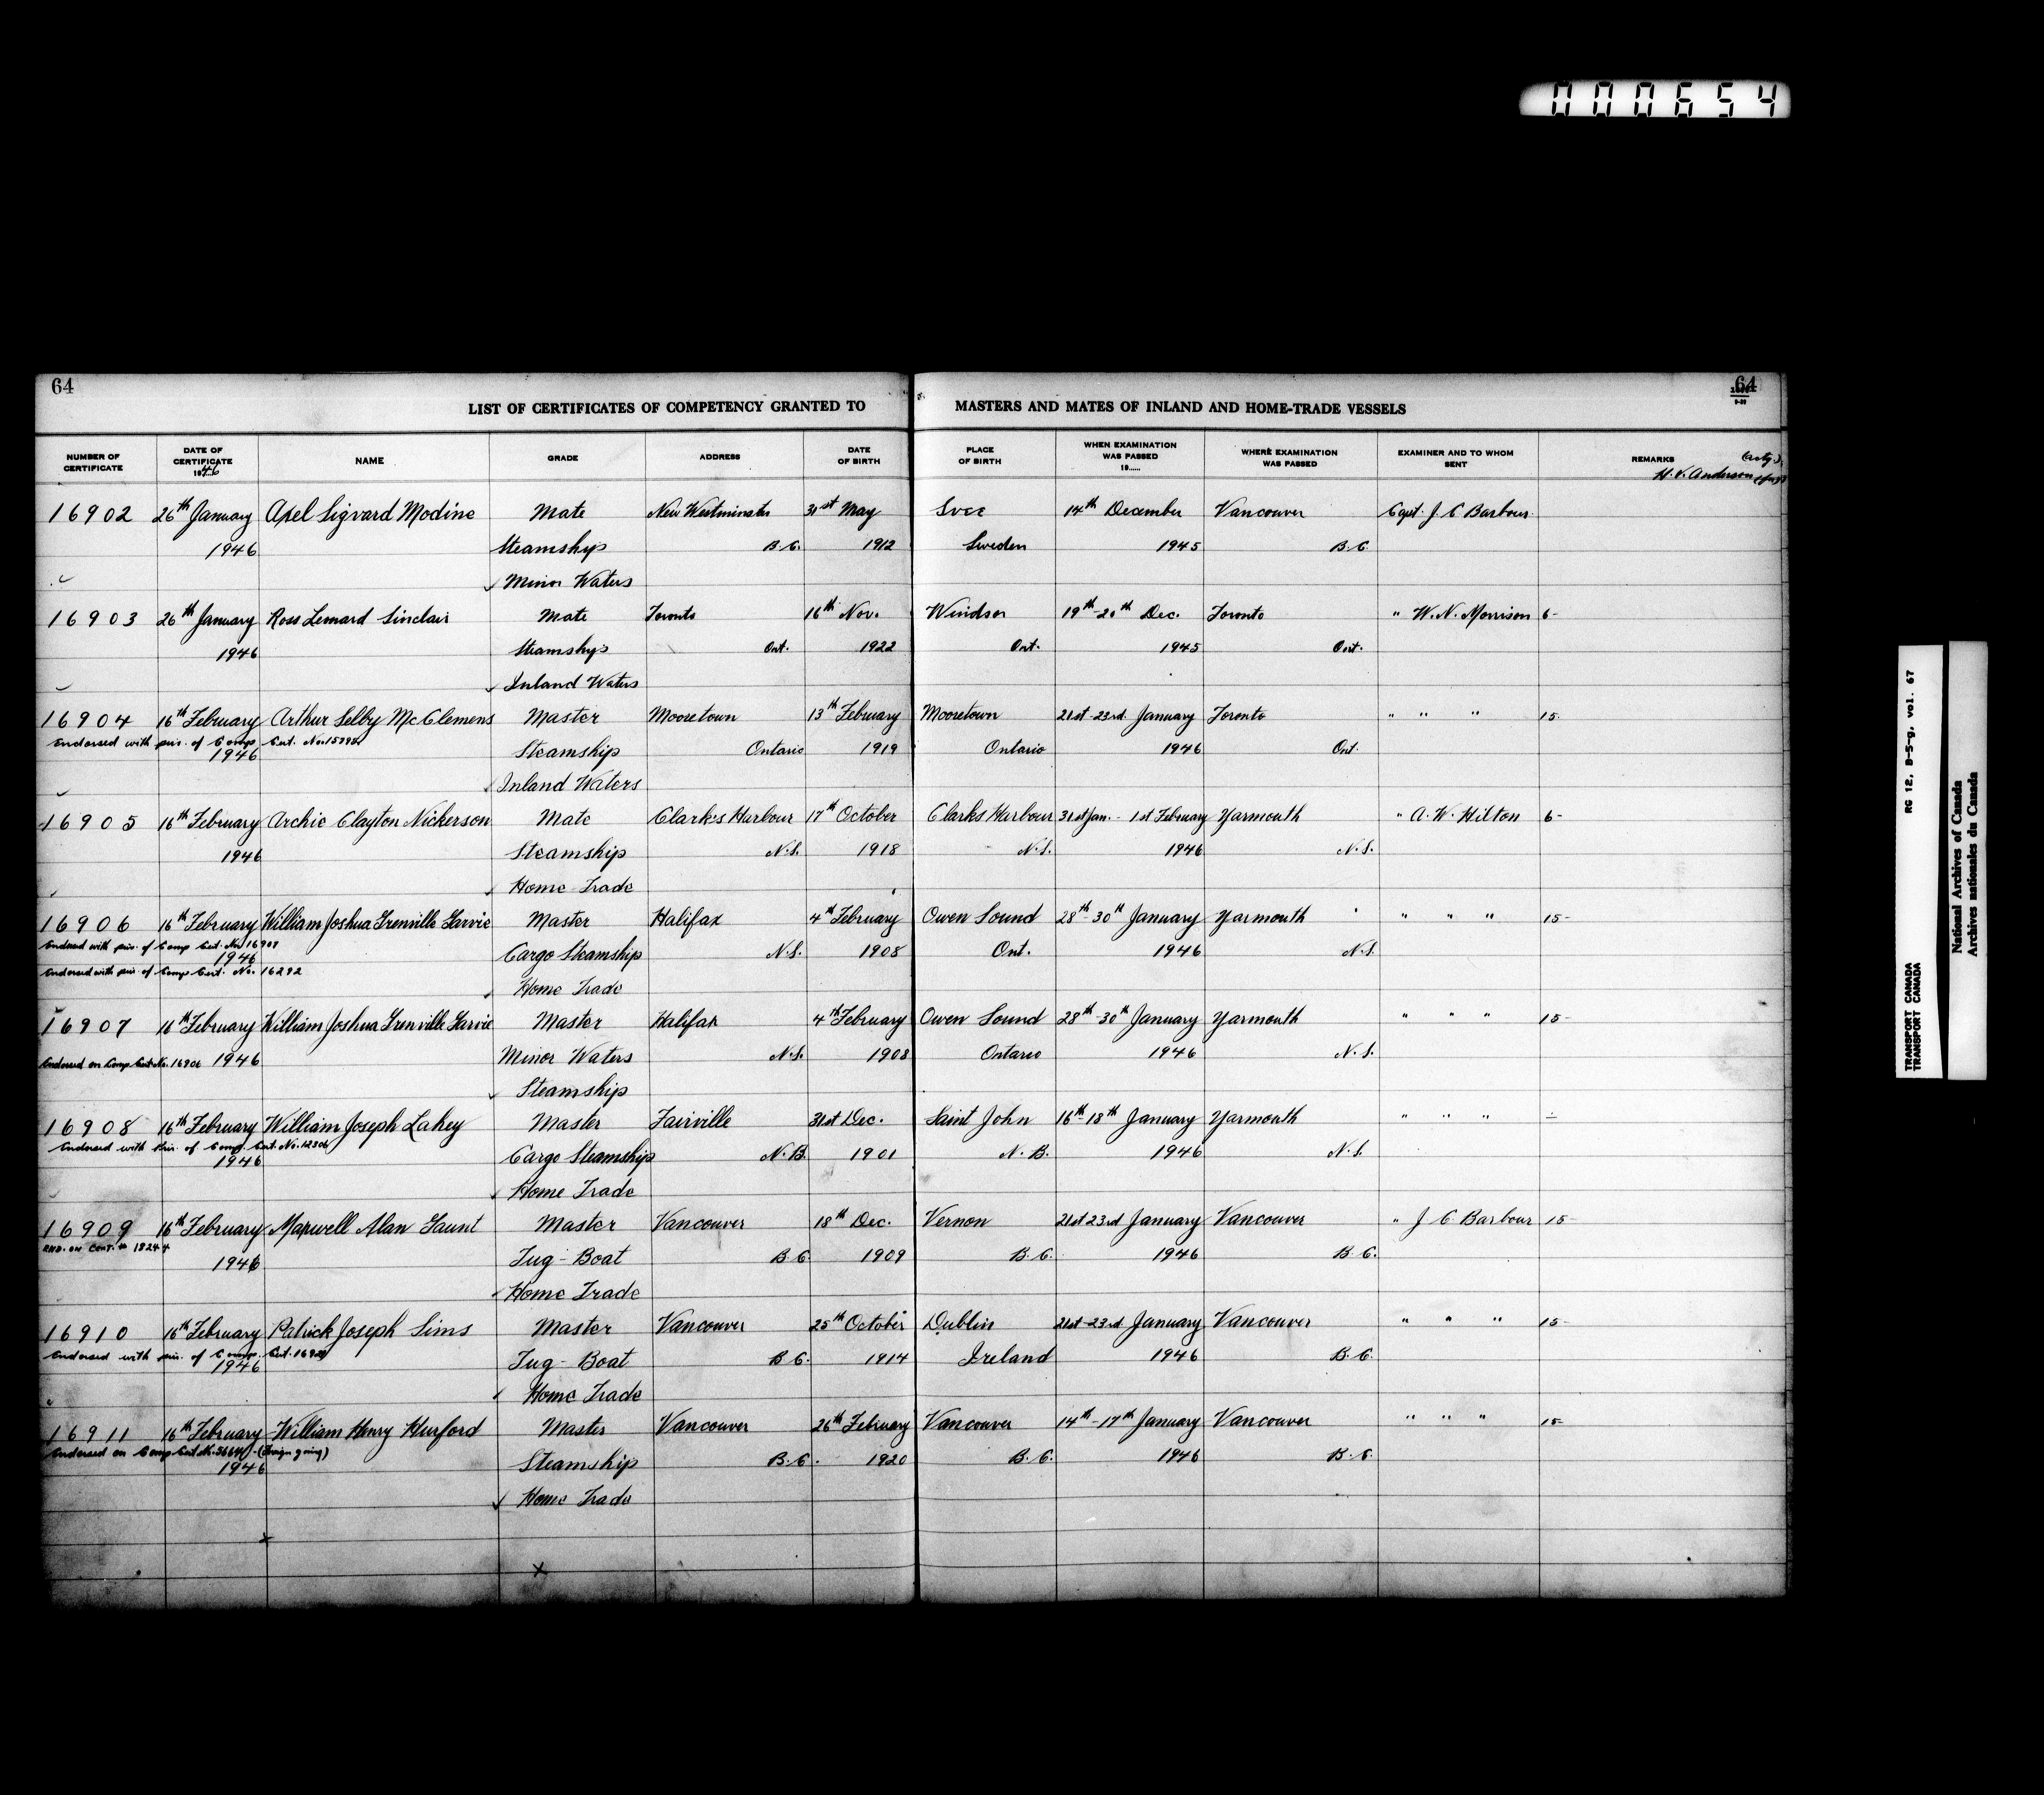 000654
64
64
LIST OF CERTIFICATES OF COMPETENCY GRANTED TO MASTERS AND MATES OF INLAND AND HOME-TRADE VESSELS
NUMBER OF CERTIFICATE DATE OF CERTIFICATE 1946 NAME GRADE ADDRESS DATE OF BIRTH PLACE OF BIRTH WHEN EXAMINATION WAS PASSED 19...... WHERE EXAMINATION WAS PASSED EXAMINER AND TO WHOM SENT REMARKS
H. V. Anderson
16902 26th January Axel Sigvard Modine Mate New Westminster 31st May Svee 14th December Vancouver Capt. J. C. Barbour
1946 Steamship B.C. 1912 Sweden 1945 B.C.
Minor Waters
16903 26th January Ross Lenard Sinclair Mate Toronto 16th Nov. Windsor 19th-20th Dec. Toronto " W. N. Morrison 6-
1946 Steamship Ont. 1922 Ont. 1945 Ont.
Inland Waters
16904 16th February Arthur Selby McClemens Master Mooretown 13th February Mooretown 21st-23rd January Toronto " " " 15.
Endorsed with priv. of Comp. Cert. No.
1946 Steamship Ontario 1919 Ontario 1946 Ont.
Inland Waters
16905 16th February Archie Clayton Nickerson Mate Clark's Harbour 17th October Clarks Harbour 31st Jan. - 1st February Yarmouth " A. W. Hilton 6-
1946 Steamship N.S. 1918 N.S. 1946 N.S.
Home Trade
16906 16th February William Joshua Grenville Garvie Master Halifax 4th February Owen Sound 28th-30th January Yarmouth " " " 15-
Endorsed with priv. of Comp Cert. No. 16907
1946 Cargo Steamship N.S. 1908 Ont. 1946 N.S.
Endorsed with priv. of Comp Cert. No. 16292
Home Trade
16907 16th February William Joshua Grenville Garvie Master Halifax 4th February Owen Sound 28th-30th January Yarmouth " " " 15-
Endorsed on Comp Cert No. 16906 1946 Minor Waters N.S. 1908 Ontario 1946 N.S.
Steamship
16908 16th February William Joseph Lahey Master Fairville 31st Dec. Saint John 16th-18th January Yarmouth " " "
Endorsed with Priv. of Comp. Cert. No. 12306
1946 Cargo Steamship N.B. 1901 N.B. 1946 N.S.
Home Trade
16909 16th February Maxwell Alan Gaunt Master Vancouver 18th Dec. Vernon 21st 23rd January Vancouver " J C Barbour 15-
END. ON CERT. # 18244
1946 Tug-Boat B.C. 1909 B.C. 1946 B.C.
Home Trade
16910 16th February Patrick Joseph Sims Master Vancouver 25th October Dublin 21st-23rd January Vancouver " " " 15-
Endorsed with priv. of Comp. Cert.
1946 Tug-Boat B.C. 1914 Ireland 1946 B.C.
Home Trade
16911 16th February William Henry Hurford Master Vancouver 26th February Vancouver 14th-17th January Vancouver " " " 15-
Endorsed on Comp Cert No. (Foreign going)
1946 Steamship B.C. 1920 B.C. 1946 B.C.
Home Trade
x
x
TRANSPORT CANADA RG 12, B-5-g, vol. 67
TRANSPORT CANADA
National Archives of Canada
Archives nationales du Canada